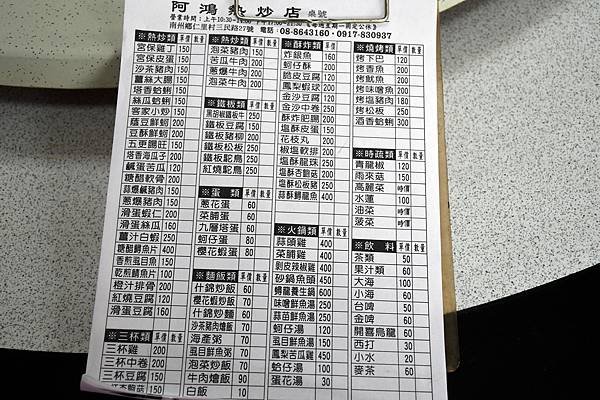 阿鴻熱炒店 桌號
南州鄉仁里村三民路27號 電話:08-8643160·0917-830937
※熱炒類 單價 數量
宮保雞丁 150
宮保皮蛋 150
沙茶豬肉 150
薑絲大腸 150
塔香蛤蜊 150
絲瓜蛤蜊 150
客家小炒 150
蔭豆鮮蚵 200
豆酥鮮蚵 200
五更腸旺 150
塔香海瓜子 200
鹹蛋苦瓜 120
糖醋軟骨 200
蒜爆鹹豬肉 150
滑蛋蝦仁 200
滑蛋絲瓜 160
薑汁白蝦 250
糖醋鱘魚片 400
香煎虱目魚 150
乾煎鯖魚片 100
橙汁排骨 200
紅燒豆腐 120
滑蛋豆腐 160
※三杯類 單價 數量
三杯雞 200
三杯中卷 200
三杯豆腐 150
泡菜豬肉 150
苦瓜牛肉 200
蔥爆牛肉 200
泡菜牛肉 200
※鐵板類 單價 數量
黑胡椒鐵板牛 250
鐵板豆腐 150
鐵板豬柳 200
鐵板松板 250
鐵板鴕鳥 250
紅燒鴕鳥 250
※蛋類 單價 數量
蔥花蛋 60
菜脯蛋 60
九層塔蛋 60
蚵仔蛋 80
櫻花蝦蛋 80
※麵飯類 單價 數量
什錦炒飯 60
櫻花蝦炒飯 70
什錦炒麵 60
沙茶豬肉燴飯 70
海產粥 70
虱目魚粥 70
泡菜炒飯 70
牛肉燴飯 90
白飯 10
※酥炸類 單價 數量
炸銀魚 160
蚵仔酥 200
脆皮豆腐 120
鳳梨蝦球 200
金沙豆腐 120
金沙中卷 250
酥炸肥腸 200
塩酥皮蛋 150
花枝丸 200
椒塩軟排 200
塩酥龍珠 250
塩酥杏鮑菇 200
塩酥松板豬 250
蒜酥鱘龍魚 400
※火鍋類 單價 數量
蒜頭雞 400
菜脯雞 400
剝皮辣椒雞 400
砂鍋魚頭 450
鱘龍養生鍋 600
味噌鮮魚湯 250
蒜苗鮮魚湯 250
蚵仔湯 120
虱目魚湯 150
鳳梨苦瓜雞 450
蛤仔湯 100
蛋花湯 30
※燒烤類 單價 數量
烤下巴 120
烤香魚 200
烤魷魚 200
烤味噌魚 150
烤塩豬肉 180
烤松板 250
酒香蛤蜊 300
※時蔬類 單價 數量
青龍椒 120
雨來菇 150
高麗菜 時價
水蓮 100
油菜 時價
菠菜 時價
※飲料 單價 數量
茶類 50
果汁類 60
大海 100
小海 60
台啤 50
金啤 60
開喜烏龍 60
西打 30
小水 20
麥茶 60